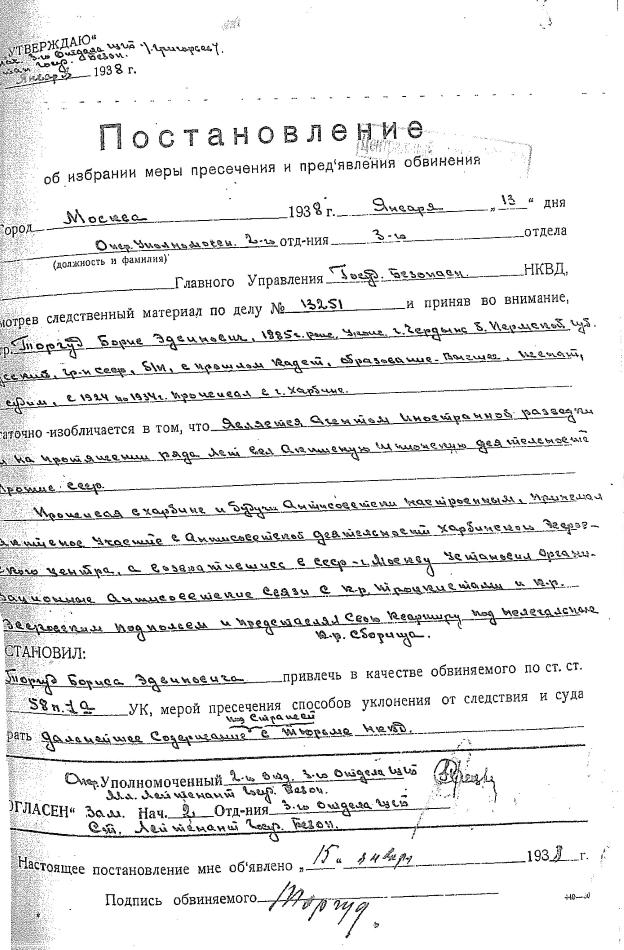 УТВЕРЖДАЮ"
Нач. 3-го Отдела ЦГБ /Григорьев/.
Гоcуд. Безоп.
Января 1938 г.
Постановление
об избрании меры пресечения и пред'явления обвинения
Город Москва 1938 г. Января „13" дня
Опер. Уполномочен. 2-го отд-ния 3-го отдела
(должность и фамилия)
Главного Управления Госуд. Безопасн. НКВД,
мотрев следственный материал по делу № 13251 и приняв во внимание,
гр. Торгуд Борис Эдвинович, рожд., г. Чердынь б. Пермской губ.
русский, гр-н ссср, б/п, в прошлом кадет, образование-высшее, женат,
с 1924 по 1934г. проживал в г. Харбине.
таточно изобличается в том, что является агентом иностранной разведки
и на протяжении ряда лет вел активную шпионскую деятельность
против ссср.
Проживая в харбине и будучи антисоветски настроенным, принимал
активное участие в антисоветской деятельности харбинского эсеров-
ского центра, а возвратившись в ссср - г. Москву установил органи-
зационные антисоветские связи с к.р. троцкистами и к.р.
эсеровским подпольем и представлял свою квартиру под нелегальные
к.р. сборища.
СТАНОВИЛ:
Торгуд Бориса Эдвиновича привлечь в качестве обвиняемого по ст. ст.
58 п. 1а УК, мерой пресечения способов уклонения от следствия и суда
под стражей
рать дальнейшее содержание в тюрьме НКВД.
Опер. Уполномоченный 2-го отд. 3-го отдела
Мл. Лейтенант Госуд. Безоп.
ОГЛАСЕН" Зам. Нач. 2 Отд-ния 3-го отдела
Ст. Лейтенант Госуд. Безоп.
Настоящее постановление мне об'явлено „15" января 1938 г.
Подпись обвиняемого Торгуд.